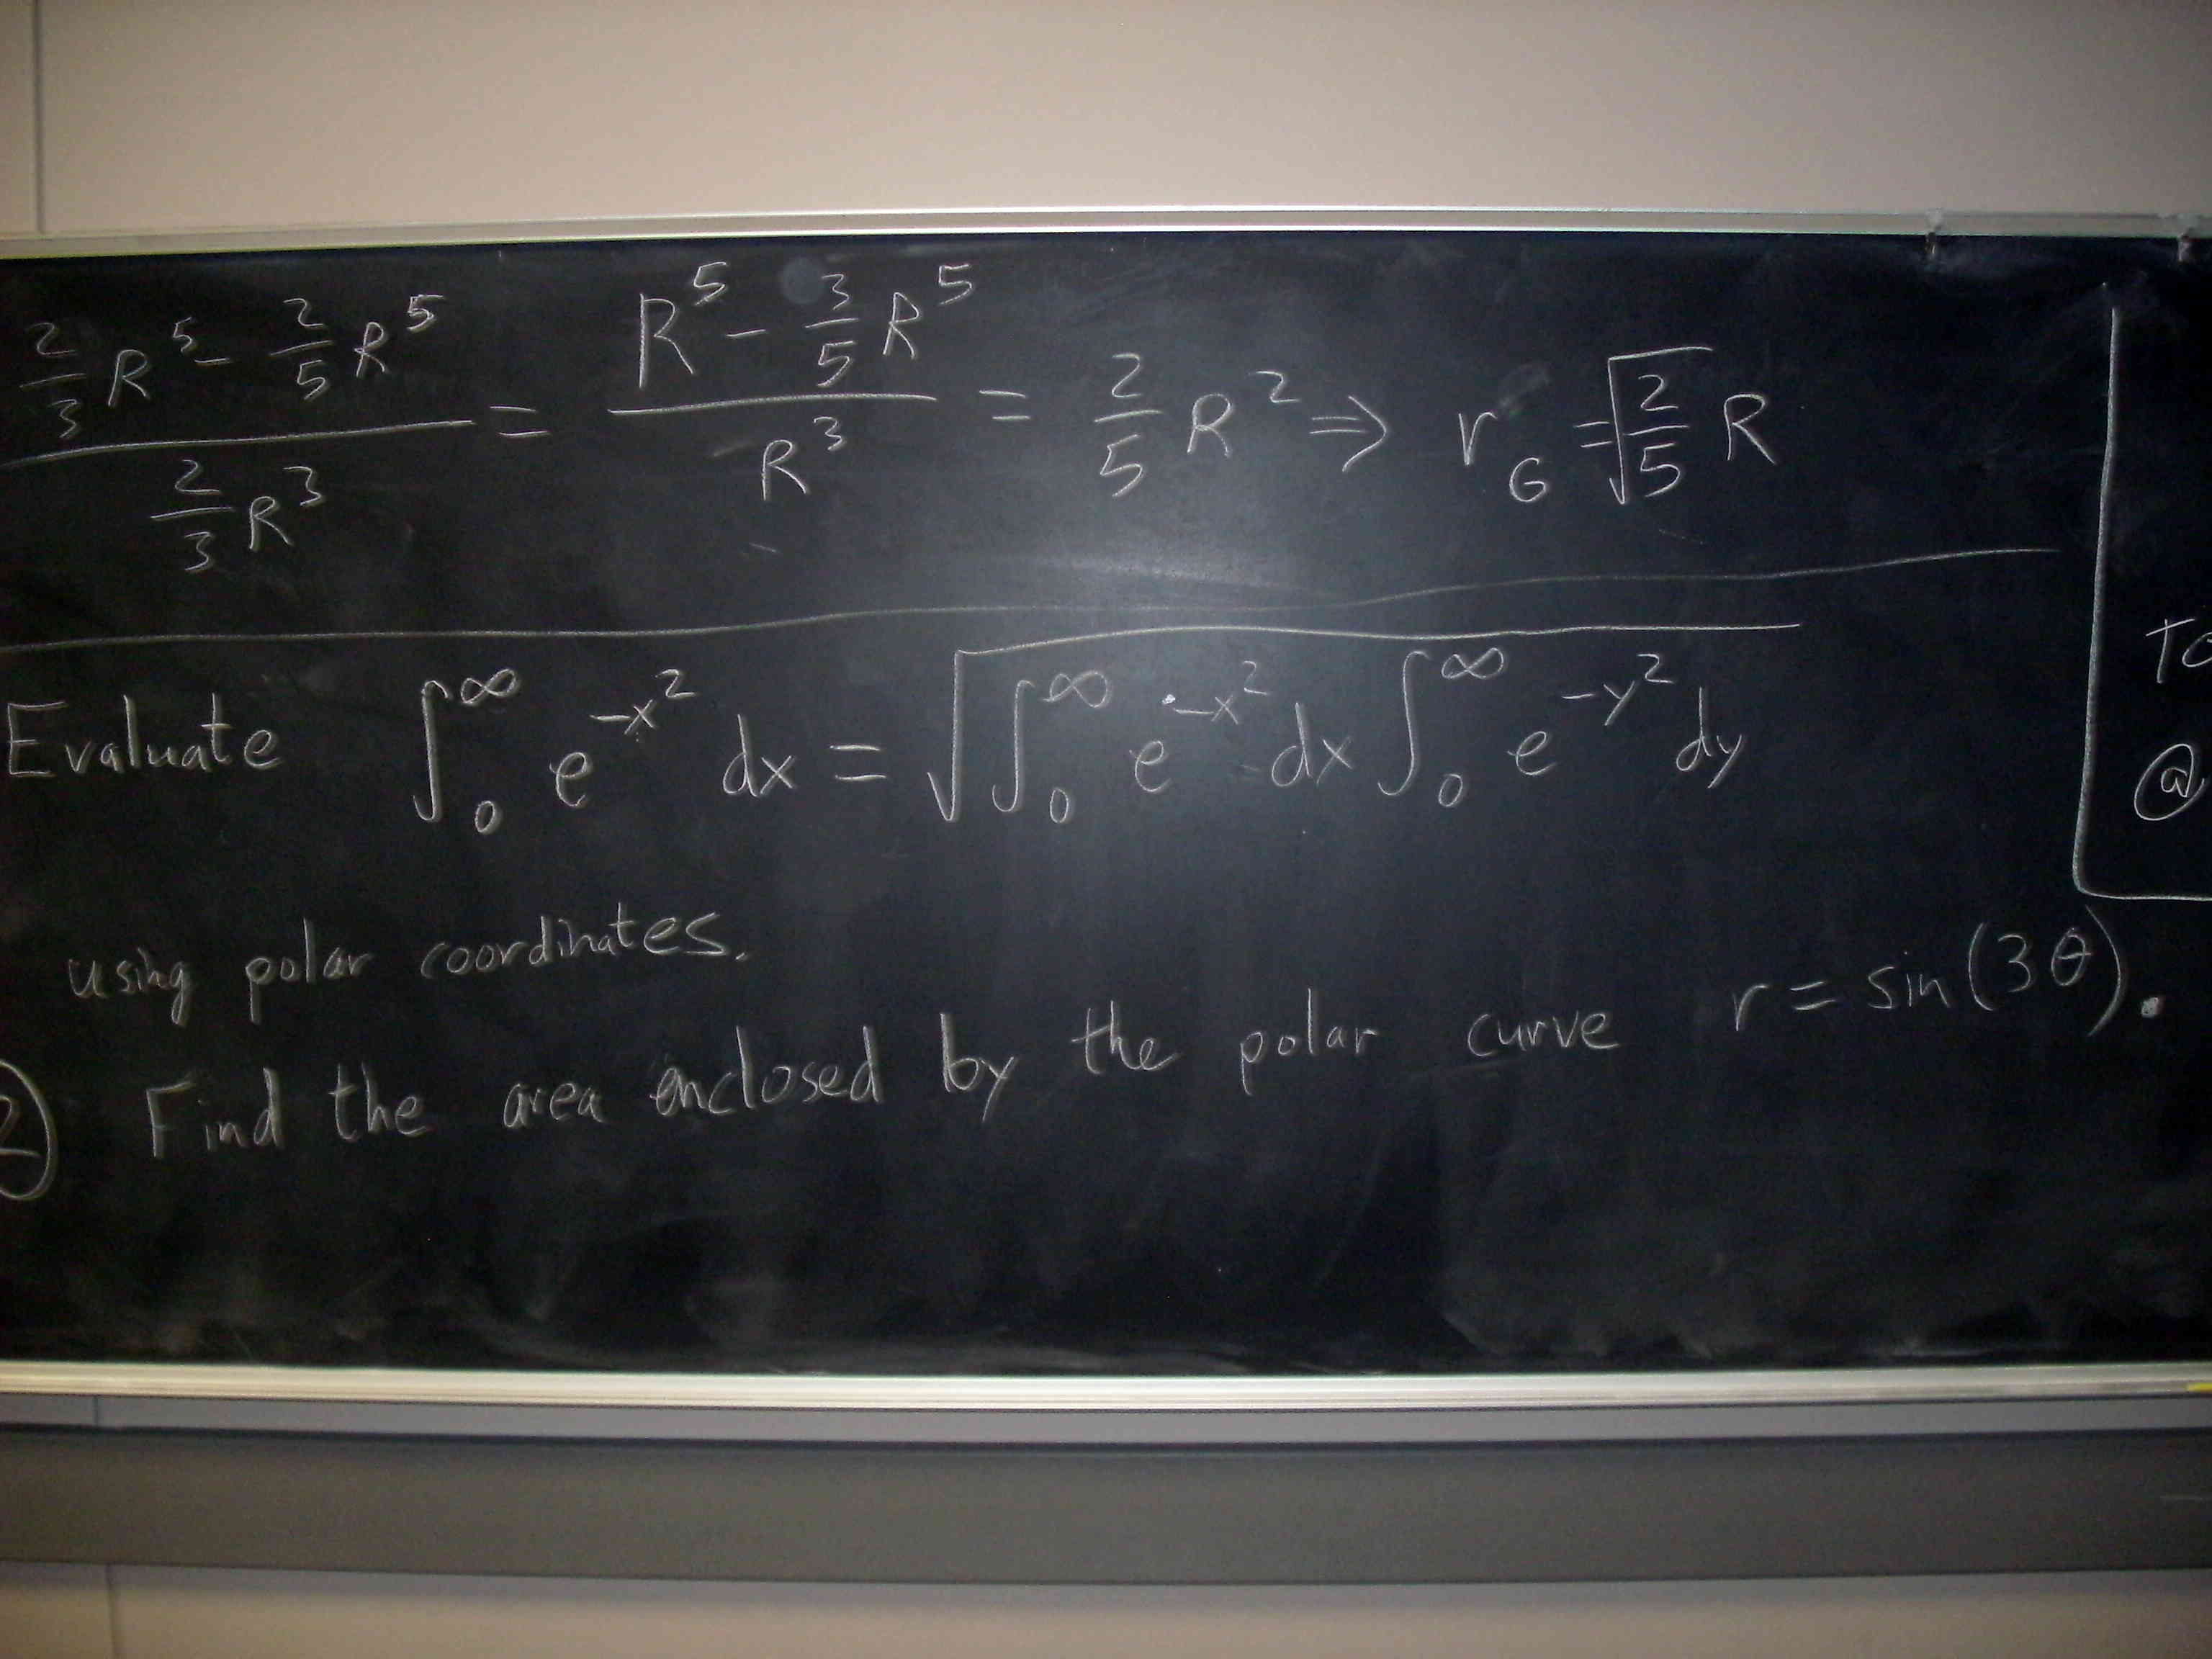 2/3 R^5 - 2/5 R^5 / 2/3 R^3 = R^5 - 3/5 R^5 / R^3 = 2/5 R^2 ⇒ r_G = √(2/5) R
Evaluate ∫_0^∞ e^{-x^2} dx = √(∫_0^∞ e^{-x^2} dx ∫_0^∞ e^{-y^2} dy)
using polar coordinates.
② Find the area enclosed by the polar curve r = sin(3θ).
@